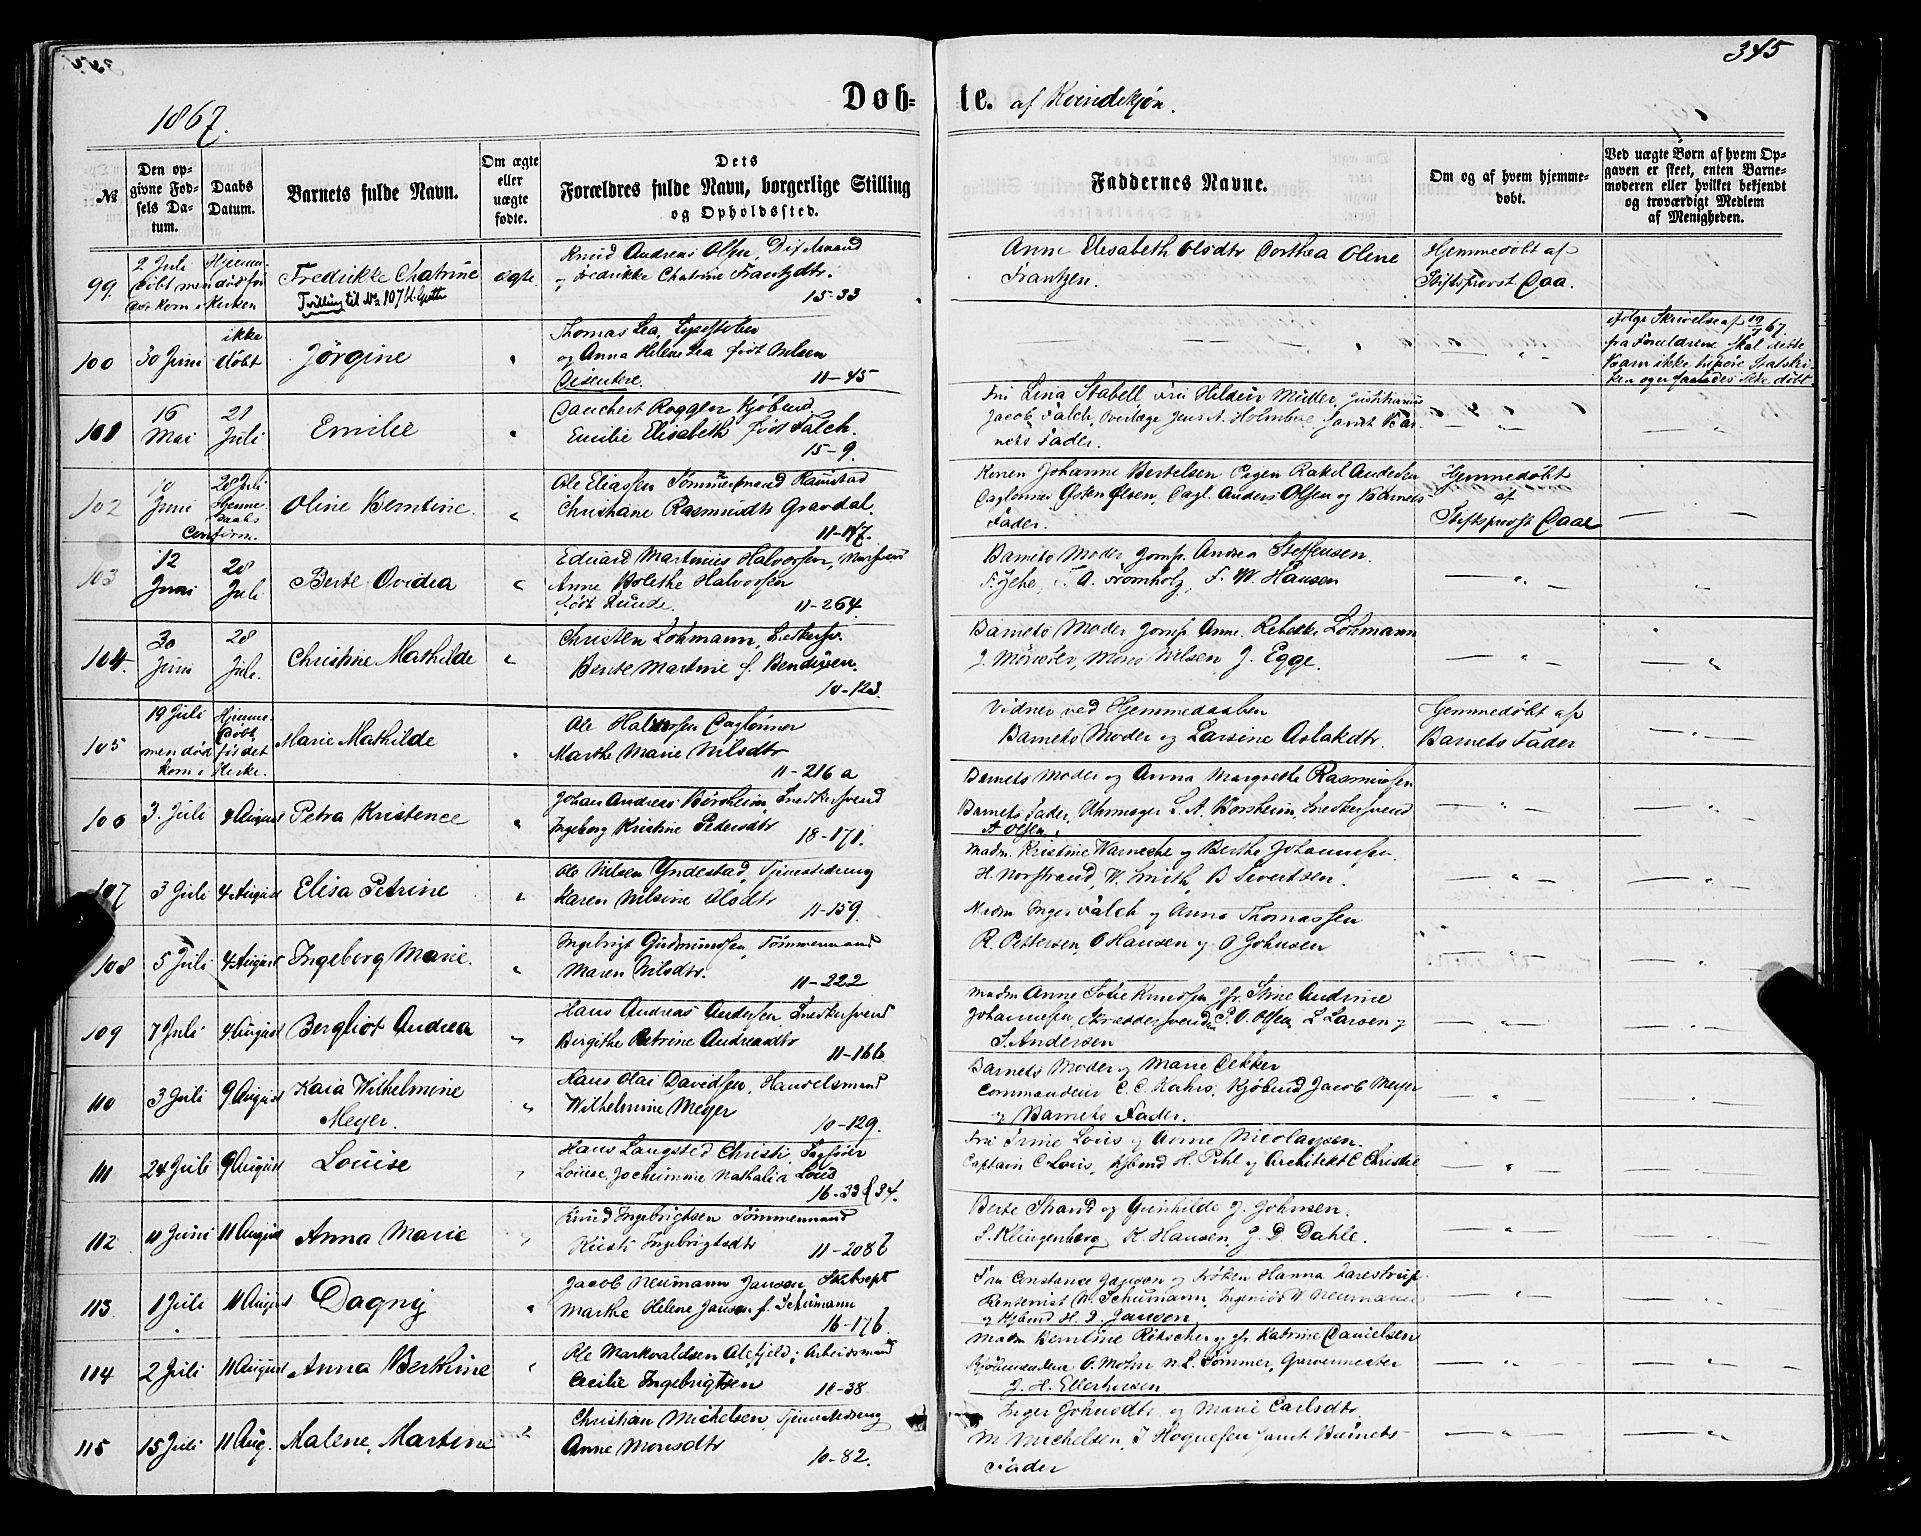 345
1867.
Døb= te. af Kvindekjøn.
№
Den op-
givne Fød-
sels Da-
tum.
Daabs
Datum.
Barnets fulde Navn.
Om ægte
eller
uægte
fødte.
Dets
Forældres fulde Navn, borgerlige Stilling
og Opholdssted.
Faddernes Navne.
Om og af hvem hjemme-
døbt.
Ved uægte Børn af hvem Op-
gaven er skeet, enten Barne-
moderen eller hvilket bekjendt
og troværdigt Medlem
af Menigheden.
99. 2 Juli Hjemme-
døbt men død før
det kom i Kirken
Fredrikke Chatrine
Tvilling til No 107 bl. Gutte
ægte
Knud Andreas Olsen,
og Fredrikke Chatrine Frantzdtr.
15-33
Anne Elisabeth Olsdtr Dorthea Oline
Frantzen.
Hjemmedøbt af
Stiftsprovst Daa.
100 30 Juni ikke
døbt
Jörgine
Thomas Lea,
og Anna Helene Lea født Nilsen
Disentere. 11-45
ifølge Skrivelse af 19/7 67.
fra Forældrene skal dette
Barn ikke tilhøre Statskir-
ken og er saaledes ikke døbt
101 16
Mai
21
Juli
Emilie
Danchert Roggen Kjöbmd
Emilie Elisabeth født Falch.
15-9.
Fru Lina Stabell, Fru Hildur Müller, Justitiarius
Jacob Falch, Overlæge Jens A. Holmboe, samt Bar-
nets Fader.
102 10
Juni
28 Juli
Hjemme-
Daabs
Confirm.
Oline Berntine.
Ole Eliassen Tömmermand Ramstad
Christiane Rasmusdtr Gravdal.
11-147.
Konen Johanne Bertelsen Pigen Rakel Andersen
Daglönner Osten Olsen, Dagl. Anders Olsen og Barnets
Fader.
Hjemmedøbt
af
Stiftsprovst Daae
103 12
Juni
28
Juli
Berte Ovidia
Eduard Martinius Halvorsen, Mursvend
Anne Bolethe Halvorsen
født Lunde. 11-264
Barnets Moder Jomf. Andrea Steffensen.
F. Jebe, T. A. Fromholz, F. W. Hansen
104. 30
Juni
28
Juli.
Christine Mathilde
Christen Lohmann, Snedkersv.
Bente Martine f. Bendixen.
10-123.
Barnets Moder Jomf. Anne. Rebekke Lohmann
Mons Nilsen J. Egge.
105 19 Juli Hjemme-
døbt,
men død før det
kom i Kirke.
Marie Mathilde
Ole Halvorsen Daglönner
Marthe Marie Nilsdtr
11-216 a
Vidner ved Hjemmedaaben
Barnets Moder og Larsine Aslakdtr.
Hjemmedøbt af
Barnets Fader
106 3. Juli 4 August Petra Kristence
Johan Andreas Börsheim, Snedkersvend
Ingeborg Kristine Pedersdtr 18-171.
Barnets Moder og Anna Margrethe Rasmussen
Barnets Fader, Uhrmager L. A. Börsheim, Snedkersvend
A Olsen.
107 3 Juli 4 August Elisa Petrine
Ole Nilsen Yndestad, Tjenestedreng
Karen Nilsine Olsdtr 11-159.
Madm. Kristine Warneche og Berthe Johannesen.
H. Norstrand, W. Smith, B Sivertsen.
108 5 Juli 4 August Ingeborg Marie.
Ingebrigt Gudmundsen, Tömmermand
Maren Nilsdtr. 11-222
Madm Inger Falch og Anna Thomassen
R. Pettersen, O Hansen og O Johnsen
109 7 Juli 4 August Bergliot Andrea
Hans Andreas Andersen Snedkersvend
Birgithe Petrine Andreasdtr
11-166
Madm Anne Sofie Knudsen Jfr. Stine Andrine
Johannesen, Skræddersvendn P. O. Olsen, L Larsen og
S. Andersen
110 3 Juli 9 August Kaia Wilhelmine
Meyer.
Hans Olai Davidsen, Handelsmand
Wilhelmine Meyer
10-129.
Barnets Moder og Marie Dekker
Commandeur C. C. Kahrs, Kjöbmd Jacob Meyer
og Barnets Fader.
111 24 Juli 9 August Louise
Hans Langsted Christi Sagfører
Louise Jochumine Nathalia Lous
16-33 & 34.
Fru Irine Lous og Anne Nicolaysen.
Captain C Lous, Kjbmd H. Pihl og Architekt C Christie
112 11 Juni 11 August Anna Marie
Knud Ingebrigtsen Tömmermand
Kirsti Ingebrigtsdtr 11-208 b
Berte Strand og Gunhilde J. Johnsen.
S. Klingenberg K. Hansen, J. D Dahle.
113 1 Juli 11 August Dagny
Jacob Neumann Jansen, Skibscpt
Marthe Helene Jansen f. Schumann
16-176.
Fru Constance Jansen og Fröken Hanna Farestrup.
Rendenist W. Schumann, Ingeniör W Neumann
og Kjbmd H. D. Jansen
114 2 Juli 11 August Anna Berthine
Ole Markvaldsen Alefjeld; Arbeidsmand
Cecilie Ingebrigtsen 10-38
Madm Berntine Ritscher og Jfr Katrine Danielsen
Kjöbmændene O. Mohn N. L. Sommer, Garvermester
J. H. Ellerhusen
115 15 Juli 11 Aug. Malene, Martine
Christian Michelsen, Tjenestedreng
Anne Monsdtr 10-82.
Inger Johnsdtr, og Marie Carlsdtr,
M Michelsen, samt Barnets
Fader